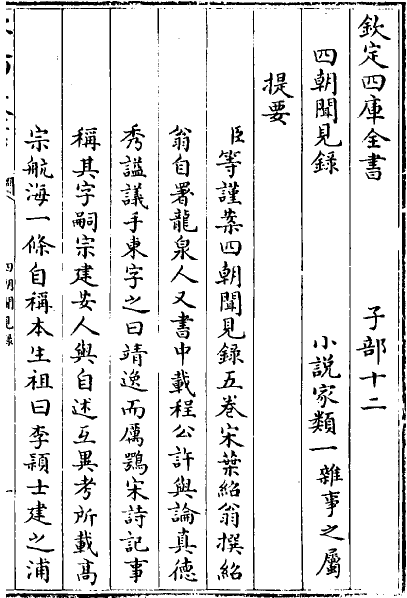 欽定四庫全書　　　子部十二
四朝聞見録　　　小說家類一雜事之屬
提要
臣等謹案四朝聞見録五卷宋葉紹翁撰紹
翁自署龍泉人又書中載程公許與論真德
秀謚議手柬字之曰靖逸而厲鶚宋詩記事
稱其字嗣宗建安人與自述互異考所載髙
宗航海一條自稱本生祖曰李頴士建之浦
四朝聞見録